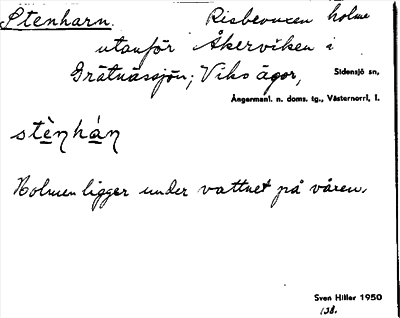 Stenharn. Risbevuxen holme
utanför Åkerviken i
Gråtnässjön; Viks ägor, Sidensjö sn,
Ångermanl. n. doms. tg., Västernorrl. l.
stè̱ŋhá̱n
Holmen ligger under vattnet på våren.
Sven Hiller 1950
138.